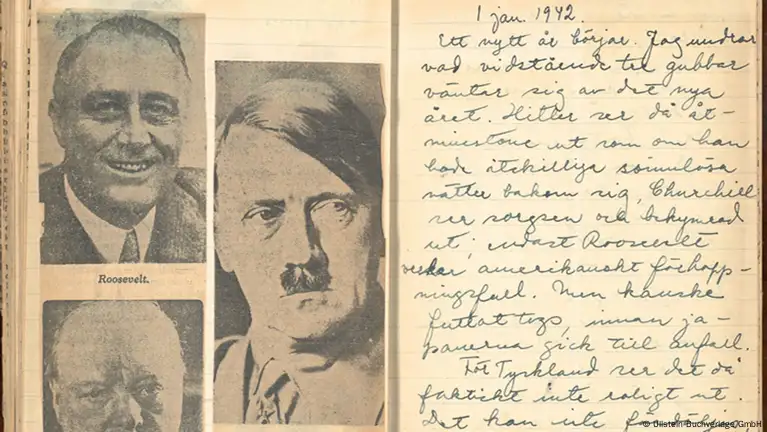 Roosevelt.
1 jan. 1942.
Ett nytt år börjar. Jag undrar
vad vidstående tre gubbar
väntar sig av det nya
året. Hitler ser då åt-
minstone ut som om han
hade åtskilliga sömnlösa
nätter bakom sig, Churchill
ser sorgsen och bekymrad
ut; endast Roosevelt
verkar amerikanskt förhopp-
ningsfull. Men kanske
fottot togs, innan ja-
panerna gick till anfall.
För Tyskland ser det då
faktiskt inte roligt ut.
Det kan inte
© Ullstein-Buchverlage GmbH